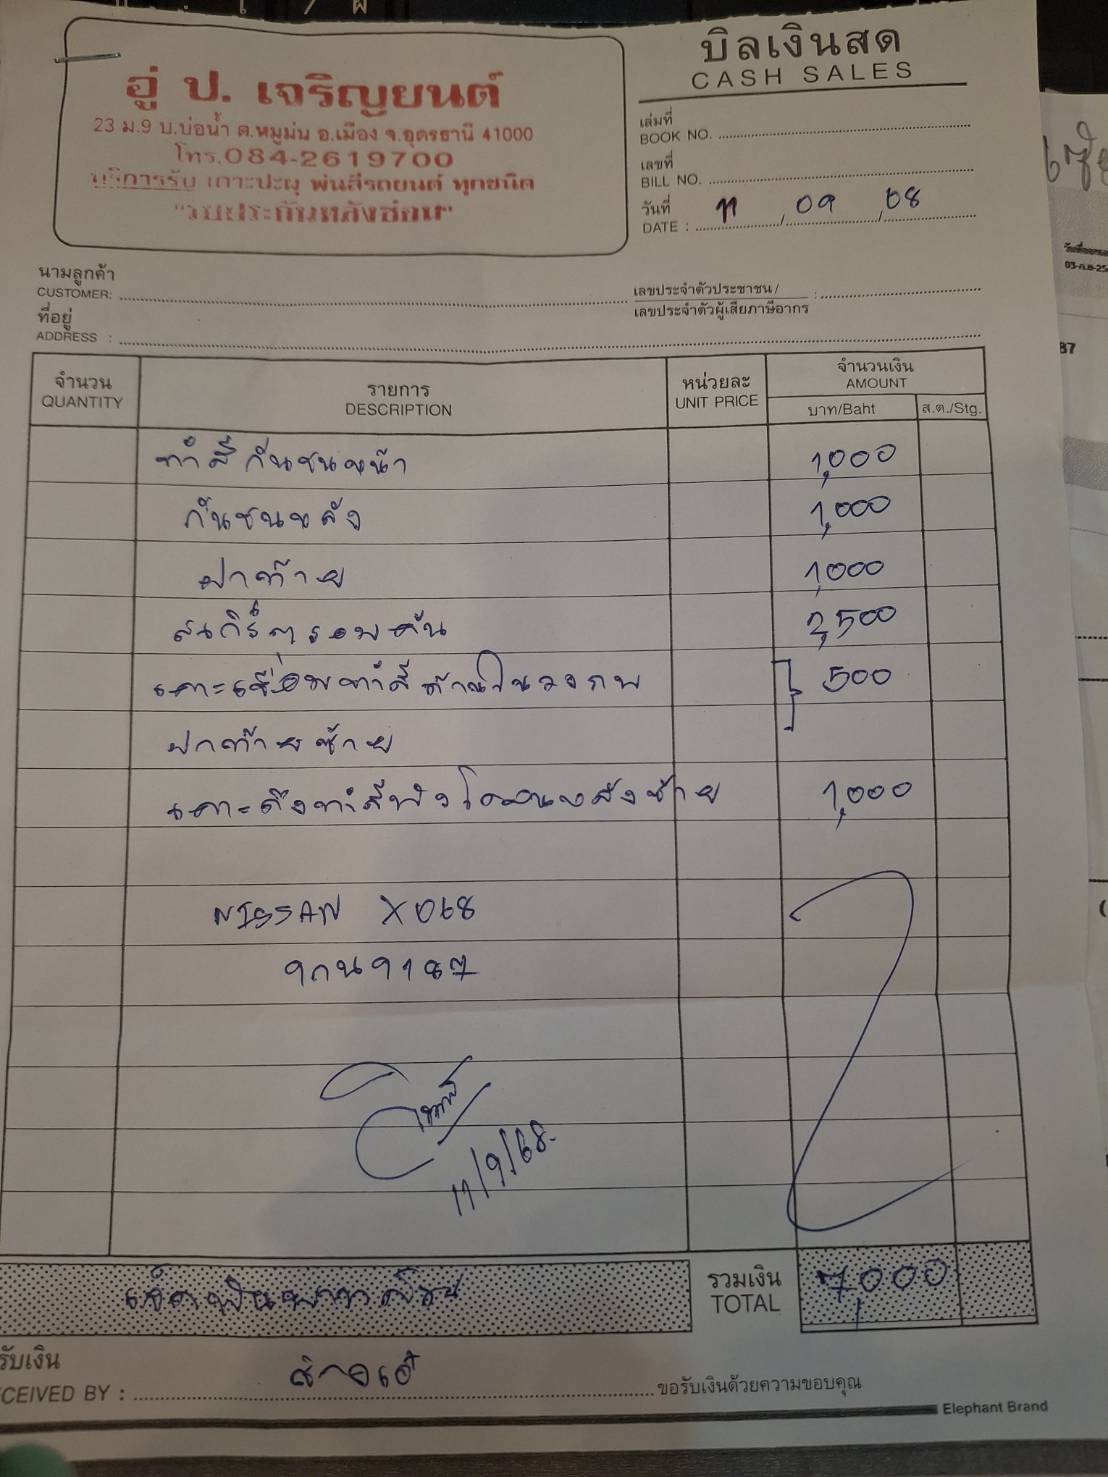 อู่ ป. เจริญยนต์
23 ม.9 บ.บ่อน้ำ ต.หมูม่น อ.เมือง จ.อุดรธานี 41000
โทร.084-2619700
บริการรับ เคาะปะผุ พ่นสีรถยนต์ ทุกชนิด
"รับประกันหลังซ่อม"
บิลเงินสด
CASH SALES
เล่มที่
BOOK NO.
เลขที่
BILL NO.
วันที่
DATE : 11 / 09 / 68
นามลูกค้า
CUSTOMER:
เลขประจำตัวประชาชน /
เลขประจำตัวผู้เสียภาษีอากร :
ที่อยู่
ADDRESS :
จำนวน รายการ หน่วยละ จำนวนเงิน
QUANTITY DESCRIPTION UNIT PRICE AMOUNT
บาท/Baht ส.ต./Stg.
ทำสีกันชนหน้า 1,000
กันชนหลัง 1,000
ฝาท้าย 1,000
สเกิร์ตรอบคัน 2,500
เคาะเชื่อมทำสีด้านในวงกบ 500
ฝาท้ายซ้าย
เคาะดึงทำสีบังโคลนหลังซ้าย 1,000
NISSAN
9กน9187
11/9/68
เจ็ดพันบาทถ้วน
รวมเงิน
TOTAL 7,000
รับเงิน
CEIVED BY :
ขอรับเงินด้วยความขอบคุณ
Elephant Brand
03-ก.ย-25
87